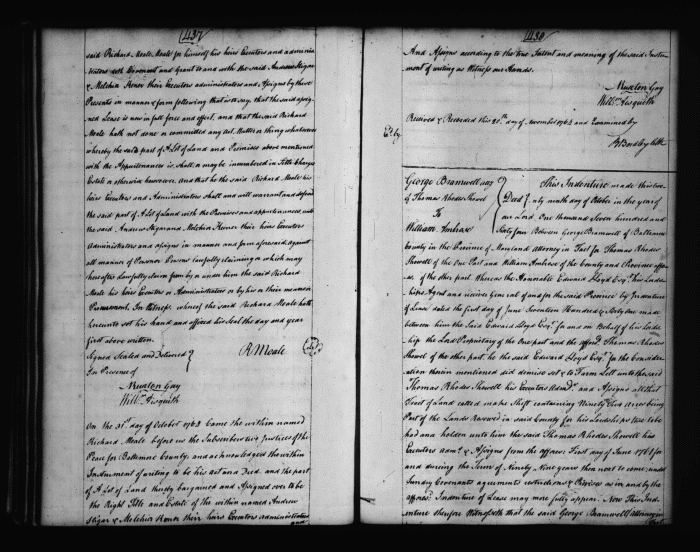 437
said Richard Moale Moale for himself his heirs Executors and adminis
trators doth Covenant and Grant to and with the said Andrew Stigar
& Melchior Keener their Executors administrators and Assigns by these
Presents in manner & form following that is to say, that the said assig
ned Lease is now in full force and effect, and that the said Richard
Moale hath not done or committed any act Matter or thing whatsoever
whereby the said part of A Lot of Land and Premises above mentioned
with the Appurtenances is, shall, or may be incumbered in Title Charge
Estate or otherwise howsoever. And that he the said Richard Moale his
heirs Executors and Administrators shall and will warrant and defend
the said part of A Lot of Land with the Premises and appurtenances, unto
the said Andrew Stigar and Melchior Keener their heirs Executors
Administrators and assigns in manner and form aforesaid against
all manner of Person or Persons lawfully claiming or which may
hereafter lawfully claim from by or under him the said Richard
Moale his heirs Executors or Administrators or by his or their means or
Procurement. In Witness whereof the said Richard Moale hath
hereunto set his hand and affixed his Seal the day and year
first above written.
Signed Sealed and Delivered
In Presence of
R Moale
Will.m Aisquith
On the 31.st day of October 1763 Came the within named
Richard Moale before us the Subscribers two Justices of the
Peace for Baltimore County, and acknowledged the within
Instrument of writing to be his act and Deed. and the part
of A Lot of Land thereby bargained and Assigned over to be
the Right Title and Estate of the within named Andrew
Stigar & Melchior Keener their heirs Executors administrators
and
438
And Assigns according to the true Intent and meaning of the said Instru
ment of writing as Witness our Hands.
Will.m Aisquith
Received & Recorded this day of November 1764 and Examined by
B Bordley Clk
George Bramwell atty
of Thomas Rhodes Shewell
To
William Ambrose
Deed
This Indenture made this twe
nty ninth day of October in the year of
our Lord One thousand Seven hundred and
Sixty four Between George Bramwell of Baltimore
County in the Province of Maryland attorney in Fact for Thomas Rhodes
Shewell of the One Part and William Ambrose of the County and Province afore
s.d of the other part. Whereas the Honorable Edward Lloyd Esq.r his Lords
hips Agent and receiver General of and for the said Province by Indenture
of Lease dated the first day of June Seventeen Hundred & Sixty One made
between him the Said Edward Lloyd Esq.r for and on Behalf of his Lords
hip the Lord Proprietary of the One part and the affors.d Thomas Rhodes
Shewell of the other part, he the said Edward Lloyd Esq.r for the Consider
ation therein mentioned did demise set & to Farm Lett unto the said
Thomas Rhodes Shewell his Executors Adm.rs and Assigns all that
Tract of Land called containing Ninety two Acres being
Part of the Lands Reserved in said County for his Lordships use to be
had and holden unto him the said Thomas Rhodes Shewell his
Executors adm.rs & Assigns from the affores.d First day of June 1761 for
and during the Term of Ninety Nine years then next to come; under
Sundry Covenants agreements restrictions & Provisoes as in and by the
affores.d Indenture of Lease may more fully appear. Now This Inde
nture therefore Witnesseth that the said George Bramwell attorney in